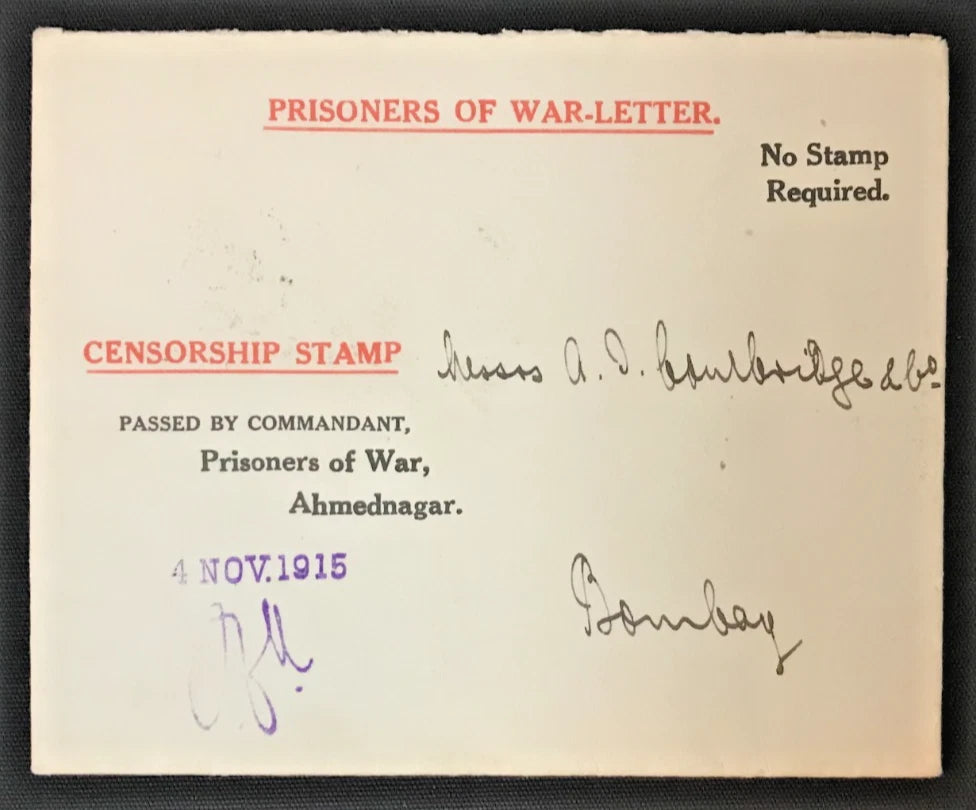 PRISONERS OF WAR-LETTER.
No Stamp
Required.
CENSORSHIP STAMP
Messrs A. D. Coulbridge & Co.
PASSED BY COMMANDANT,
Prisoners of War,
Ahmednagar.
4 NOV. 1915
Bombay